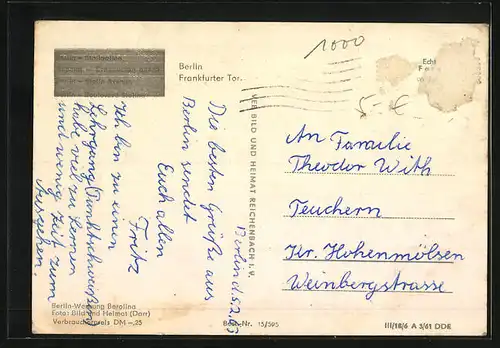 1000
Berlin
Frankfurter Tor.
Echt
5,- €
Berlin d. 5.2.63
Die besten Grüße aus
Berlin sendet
Euch allen
Fritz
Ich bin zu einen
Lehrgang (Punktschweißen)
habe viel zu Lernen
und wenig Zeit zum
Ausgehen.
VEB BILD UND HEIMAT REICHENBACH i. V.
An Familie
Theodor With
Teuchern
Kr. Hohenmölsen
Weinbergstrasse
Berlin-Werbung Berolina
Foto: Bild und Heimat (Dorr)
Verbraucherpreis DM -,25
Best.-Nr. 15/595
III/18/6 A 5/61 DDE